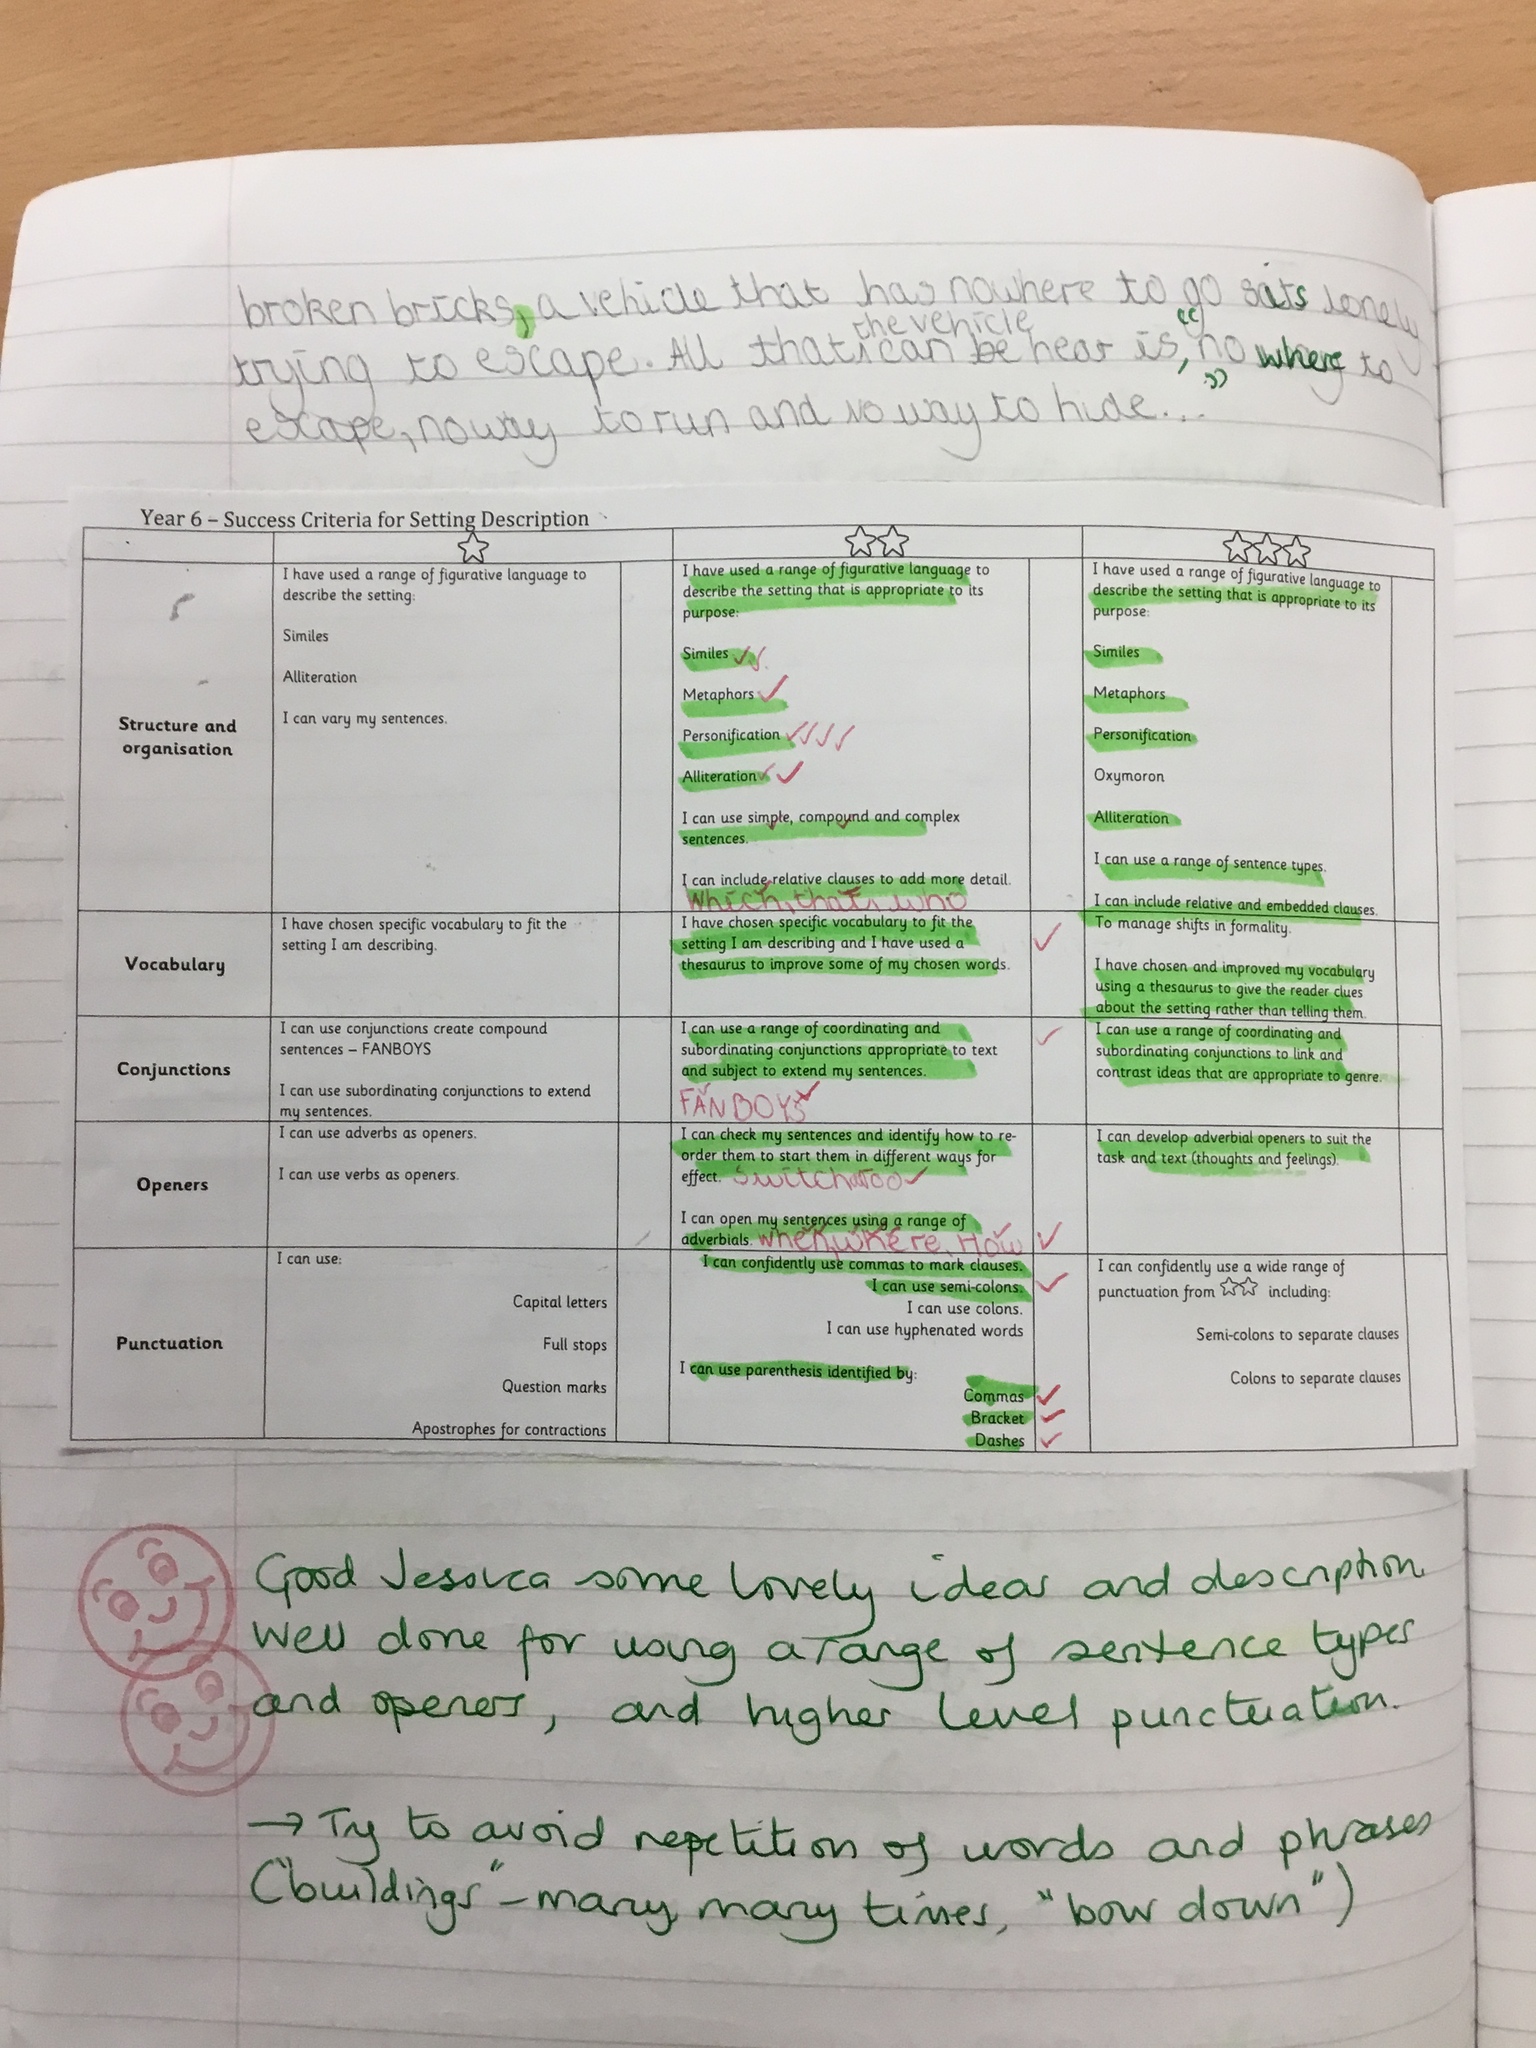 broken bricks, a vehicle that has nowhere to go sits lonely
trying to escape. All that the vehicle can be hear is, "no where to
escape, no way to run and no way to hide..."
Year 6 – Success Criteria for Setting Description
Structure and
organisation
I have used a range of figurative language to
describe the setting:
Similes
Alliteration
I can vary my sentences.
I have used a range of figurative language to
describe the setting that is appropriate to its
purpose:
Similes
Metaphors
Personification
Alliteration
I can use simple, compound and complex
sentences.
I can include relative clauses to add more detail.
Which, that, who
I have used a range of figurative language to
describe the setting that is appropriate to its
purpose:
Similes
Metaphors
Personification
Oxymoron
Alliteration
I can use a range of sentence types.
I can include relative and embedded clauses.
Vocabulary
I have chosen specific vocabulary to fit the
setting I am describing.
I have chosen specific vocabulary to fit the
setting I am describing and I have used a
thesaurus to improve some of my chosen words.
To manage shifts in formality.
I have chosen and improved my vocabulary
using a thesaurus to give the reader clues
about the setting rather than telling them.
Conjunctions
I can use conjunctions create compound
sentences – FANBOYS
I can use subordinating conjunctions to extend
my sentences.
I can use a range of coordinating and
subordinating conjunctions appropriate to text
and subject to extend my sentences.
FANBOYS
I can use a range of coordinating and
subordinating conjunctions to link and
contrast ideas that are appropriate to genre.
Openers
I can use adverbs as openers.
I can use verbs as openers.
I can check my sentences and identify how to re-
order them to start them in different ways for
effect. Switcharoo
I can open my sentences using a range of
adverbials. when, where, How
I can develop adverbial openers to suit the
task and text (thoughts and feelings).
Punctuation
I can use:
Capital letters
Full stops
Question marks
Apostrophes for contractions
I can confidently use commas to mark clauses.
I can use semi-colons.
I can use colons.
I can use hyphenated words
I can use parenthesis identified by:
Commas
Bracket
Dashes
I can confidently use a wide range of
punctuation from including:
Semi-colons to separate clauses
Colons to separate clauses
Good Jessica some lovely ideas and description
Well done for using a range of sentence types
and openers, and higher level punctuation.
→ Try to avoid repetition of words and phrases
("buildings" – many many times, "bow down")